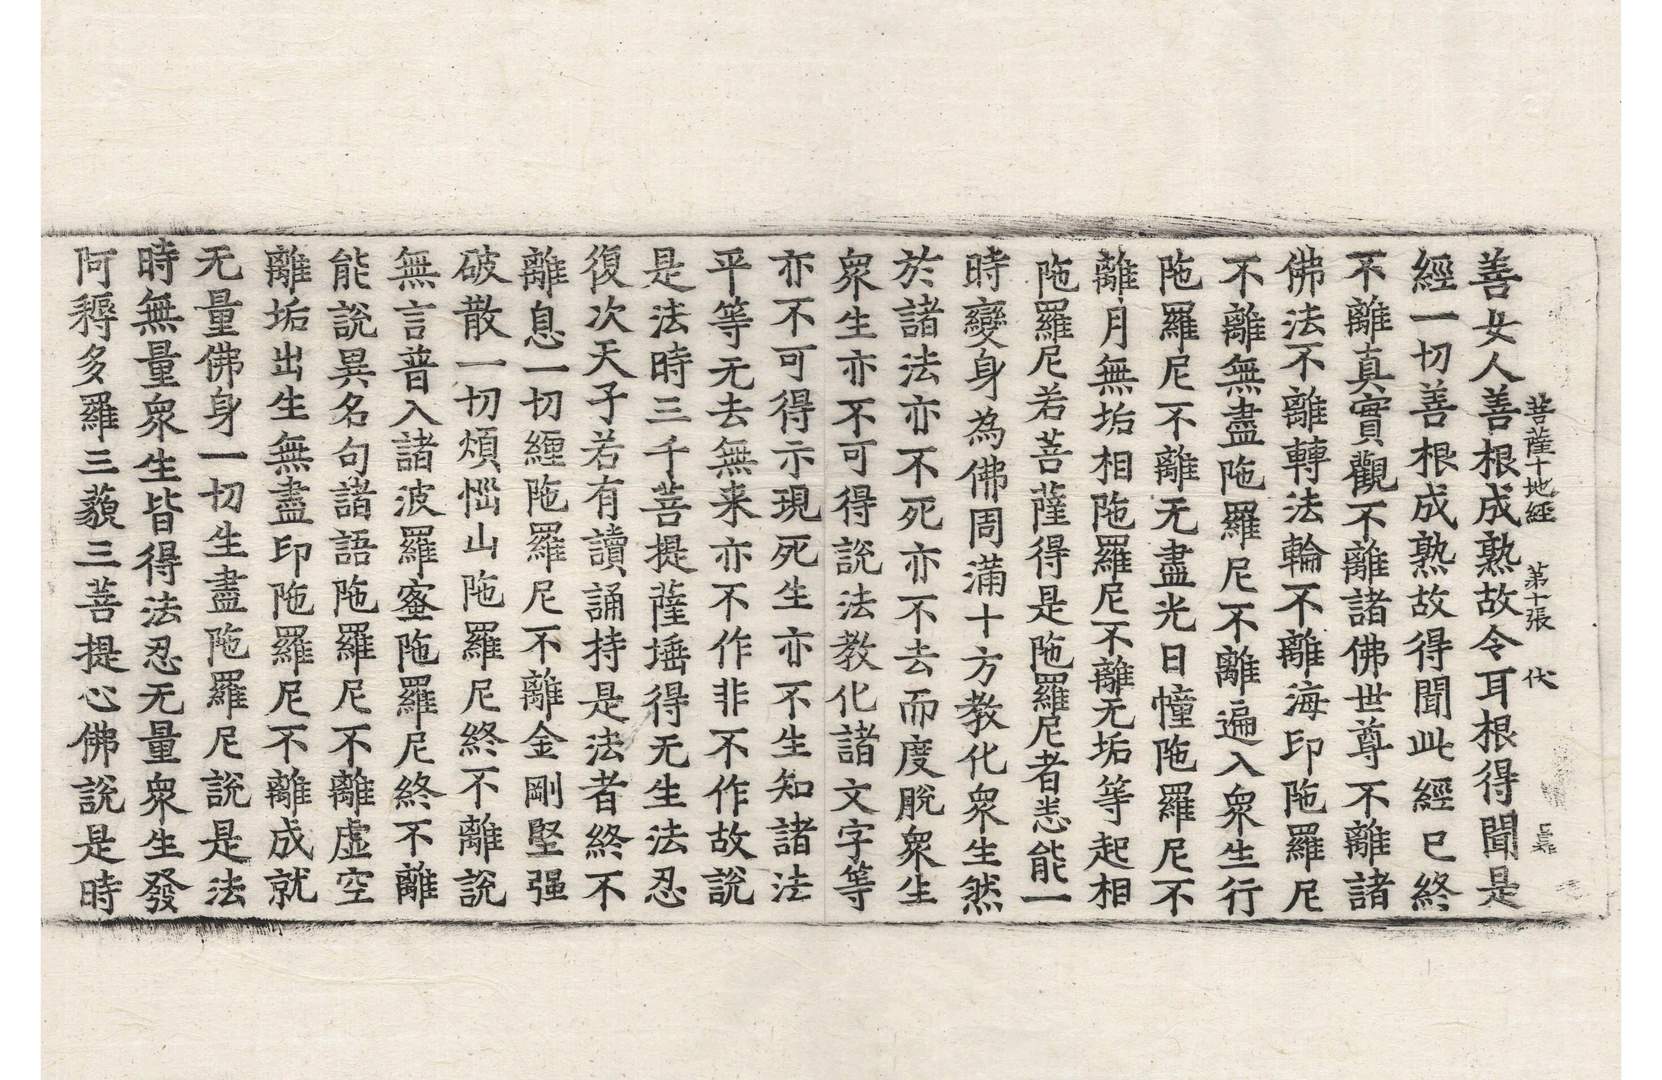 菩薩十地經 第十張 伏
善女人善根成熟故令耳根得聞是
經一切善根成熟故得聞此經已終
不離真實觀不離諸佛世尊不離諸
佛法不離轉法輪不離海印陁羅尼
不離無盡陁羅尼不離遍入衆生行
陁羅尼不離无盡光日幢陁羅尼不
離月無垢相陁羅尼不離无垢等起相
陁羅尼若菩薩得是陁羅尼者悉能一
時變身為佛周滿十方教化衆生然
於諸法亦不死亦不去而度脫衆生
衆生亦不可得說法教化諸文字等
亦不可得示現死生亦不生知諸法
平等无去無来亦不作非不作故說
是法時三千菩提薩埵得无生法忍
復次天子若有讀誦持是法者終不
離息一切纏陁羅尼不離金剛堅强
破散一切煩惱山陁羅尼終不離說
無言普入諸波羅蜜陁羅尼終不離
能說異名句諸語陁羅尼不離虛空
離垢出生無盡印陁羅尼不離成就
无量佛身一切生盡陁羅尼說是法
時無量衆生皆得法忍无量衆生發
阿耨多羅三藐三菩提心佛說是時